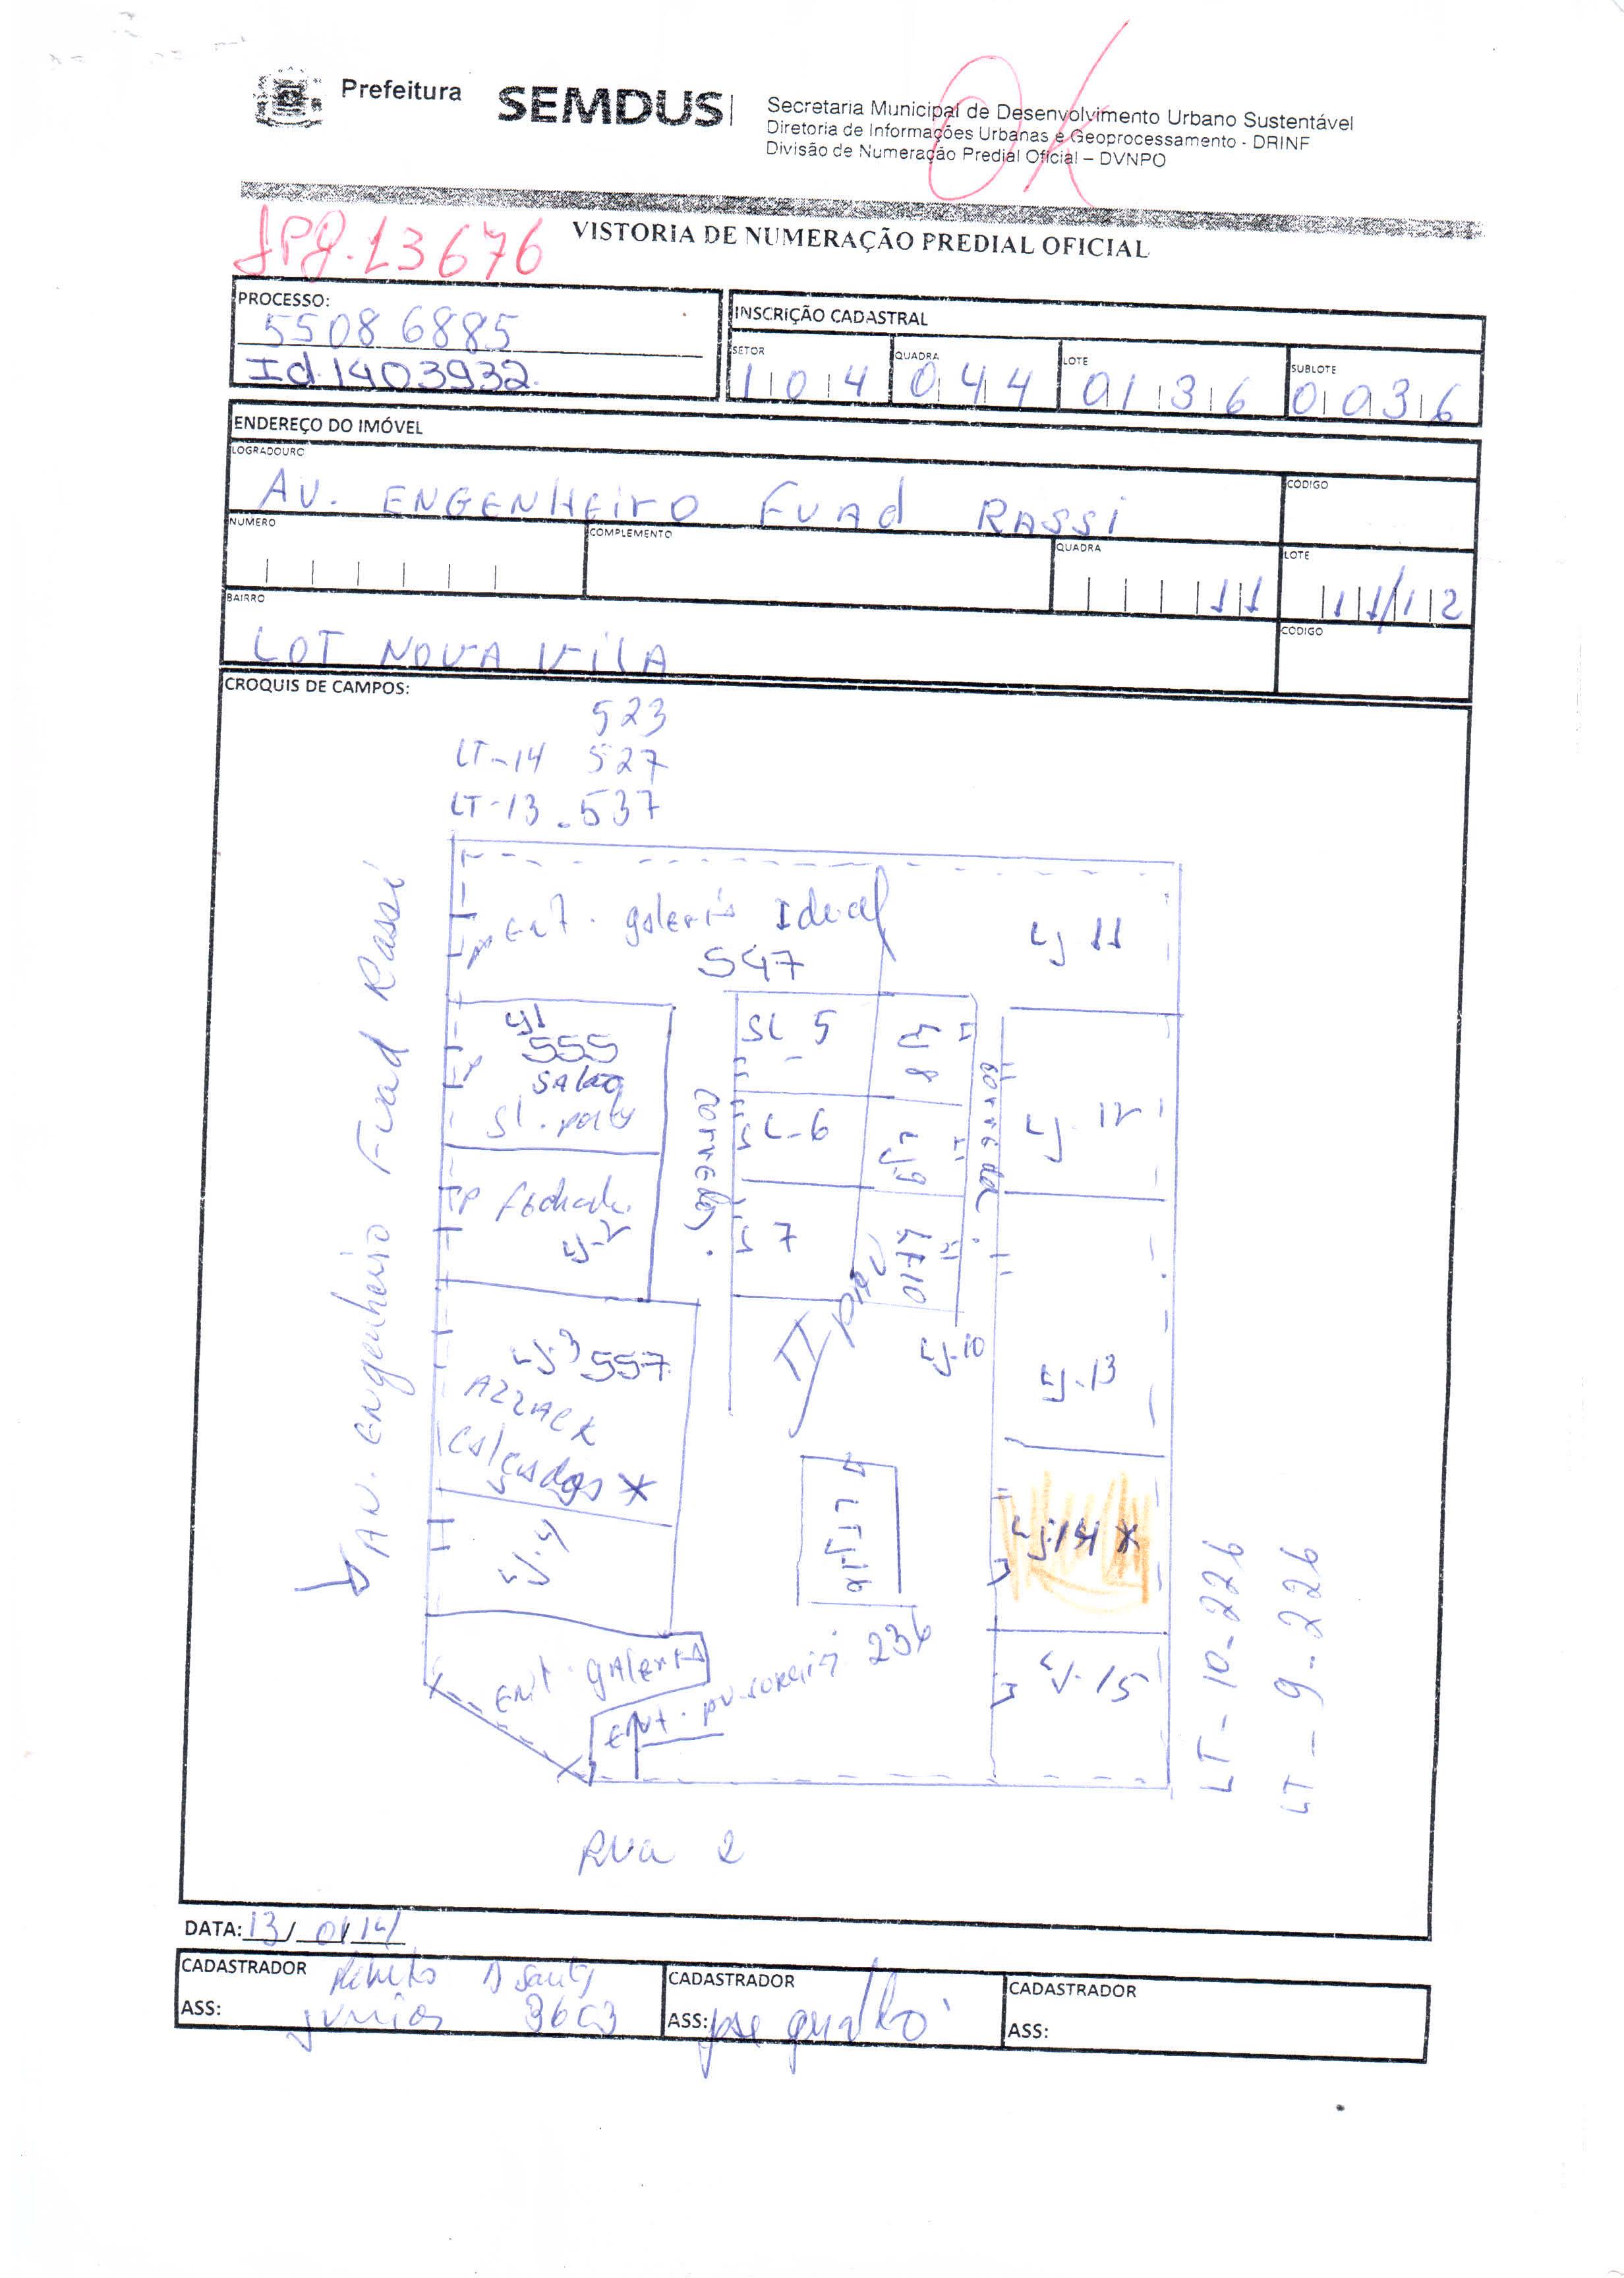 Prefeitura
SEMDUS
Secretaria Municipal de Desenvolvimento Urbano Sustentável
Diretoria de Informações Urbanas e Geoprocessamento - DRINF
Divisão de Numeração Predial Oficial – DVNPO
OK
JPG.13676
VISTORIA DE NUMERAÇÃO PREDIAL OFICIAL
PROCESSO:
55086885
Id.1403932.
INSCRIÇÃO CADASTRAL
SETOR
104
QUADRA
044
LOTE
0136
SUBLOTE
0036
ENDEREÇO DO IMÓVEL
LOGRADOURO
AV. ENGENHEIRO FUAD RASSI
CÓDIGO
NUMERO
COMPLEMENTO
QUADRA
11
LOTE
11/12
BAIRRO
LOT NOVA VILA
CÓDIGO
CROQUIS DE CAMPOS:
523
LT-14 527
LT-13.537
Ent. galeria Ideal
547
Lj 11
Lj1
555
SALÃO
SL 5
Lj 8
corredor
Lj. 12
L-6
Lj.9
corredor
fechada
Lj-2
7
Lj-10
Lj-3 557
Calçados *
Lj.13
Lj.4
Lj.14 *
Ent. galeria
Ent. 236
Lj-15
Av. Engenheiro Fuad Rassi
LT-10-226
LT-9-226
Rua 2
DATA: 13/01/14
CADASTRADOR
ASS: Junior 3603
CADASTRADOR
ASS:
CADASTRADOR
ASS: